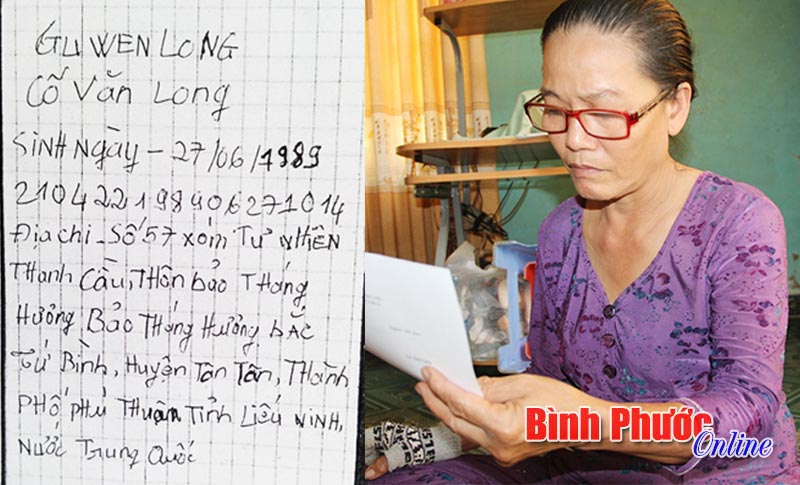 GU WEN LONG
Cố Văn Long
Sinh Ngày - 27/06/1989
210422198906271014
Địa chỉ - Số 57 xóm Tự NHIÊN
THanh Cầu, THôn bảo THắng
Hưởng Bảo THắng Hưởng bẮc
Tứ Bình, Huyện Tân Tân, THành
PHố PHủ THuận Tỉnh Liêu NiNH,
Nước Trung Quốc
Bình Phước
Online